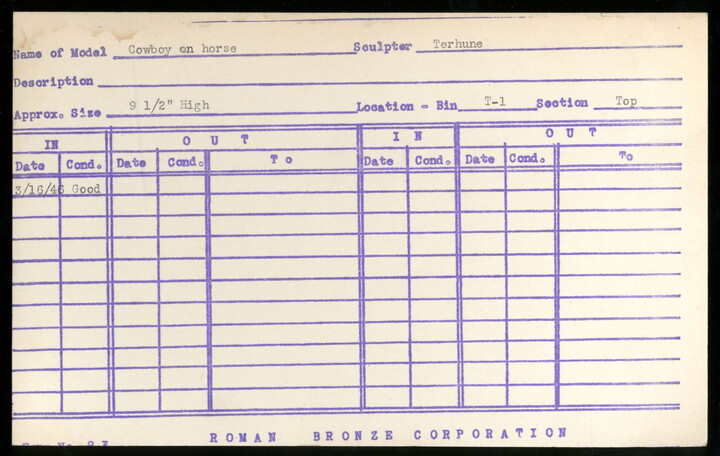 Name of Model Cowboy on horse Sculptor Terhune
Description
Approx. Size 9 1/2" High Location - Bin T-1 Section Top
IN OUT IN OUT
Date Cond. Date Cond. To Date Cond. Date Cond. To
3/16/46 Good
ROMAN BRONZE CORPORATION